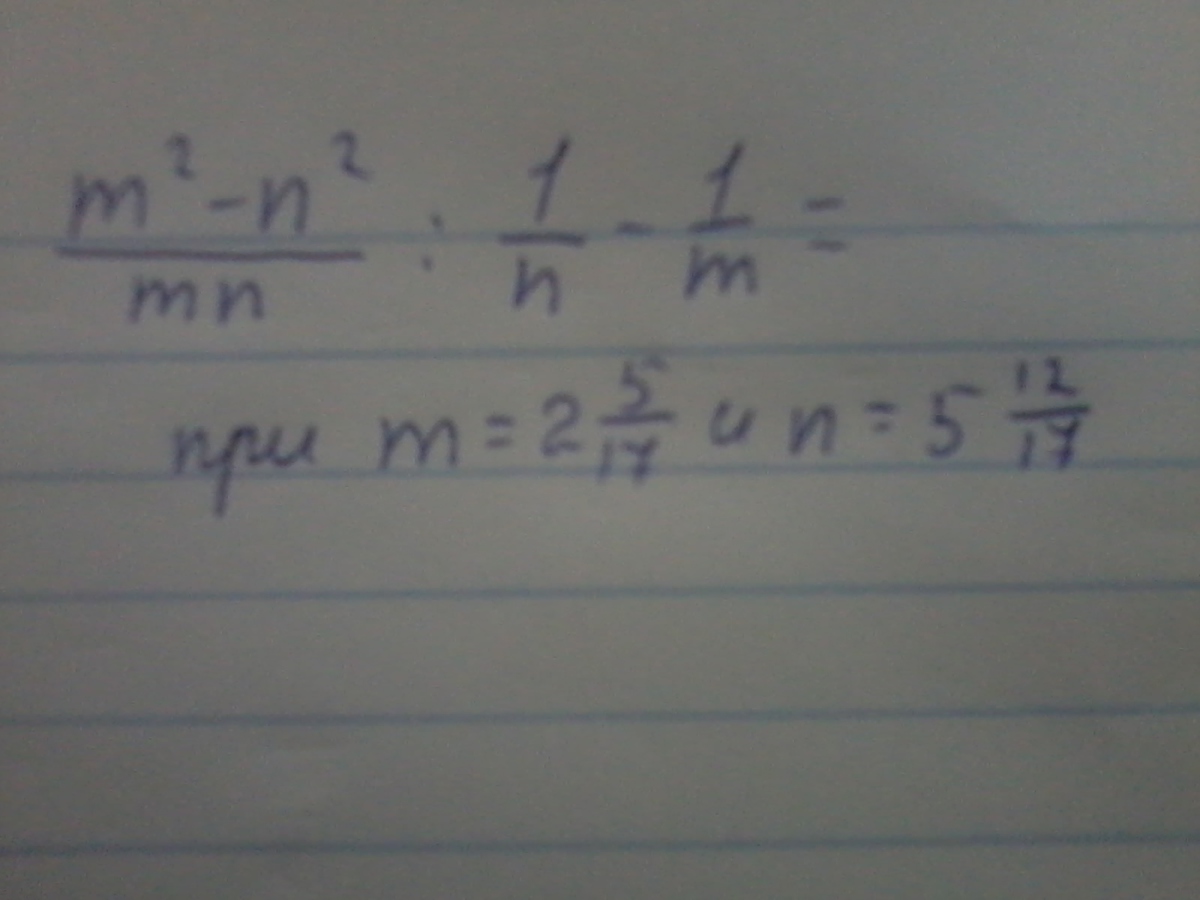 m² - n² / mn : 1/n - 1/m =
при m = 2 5/17 и n = 5 12/17